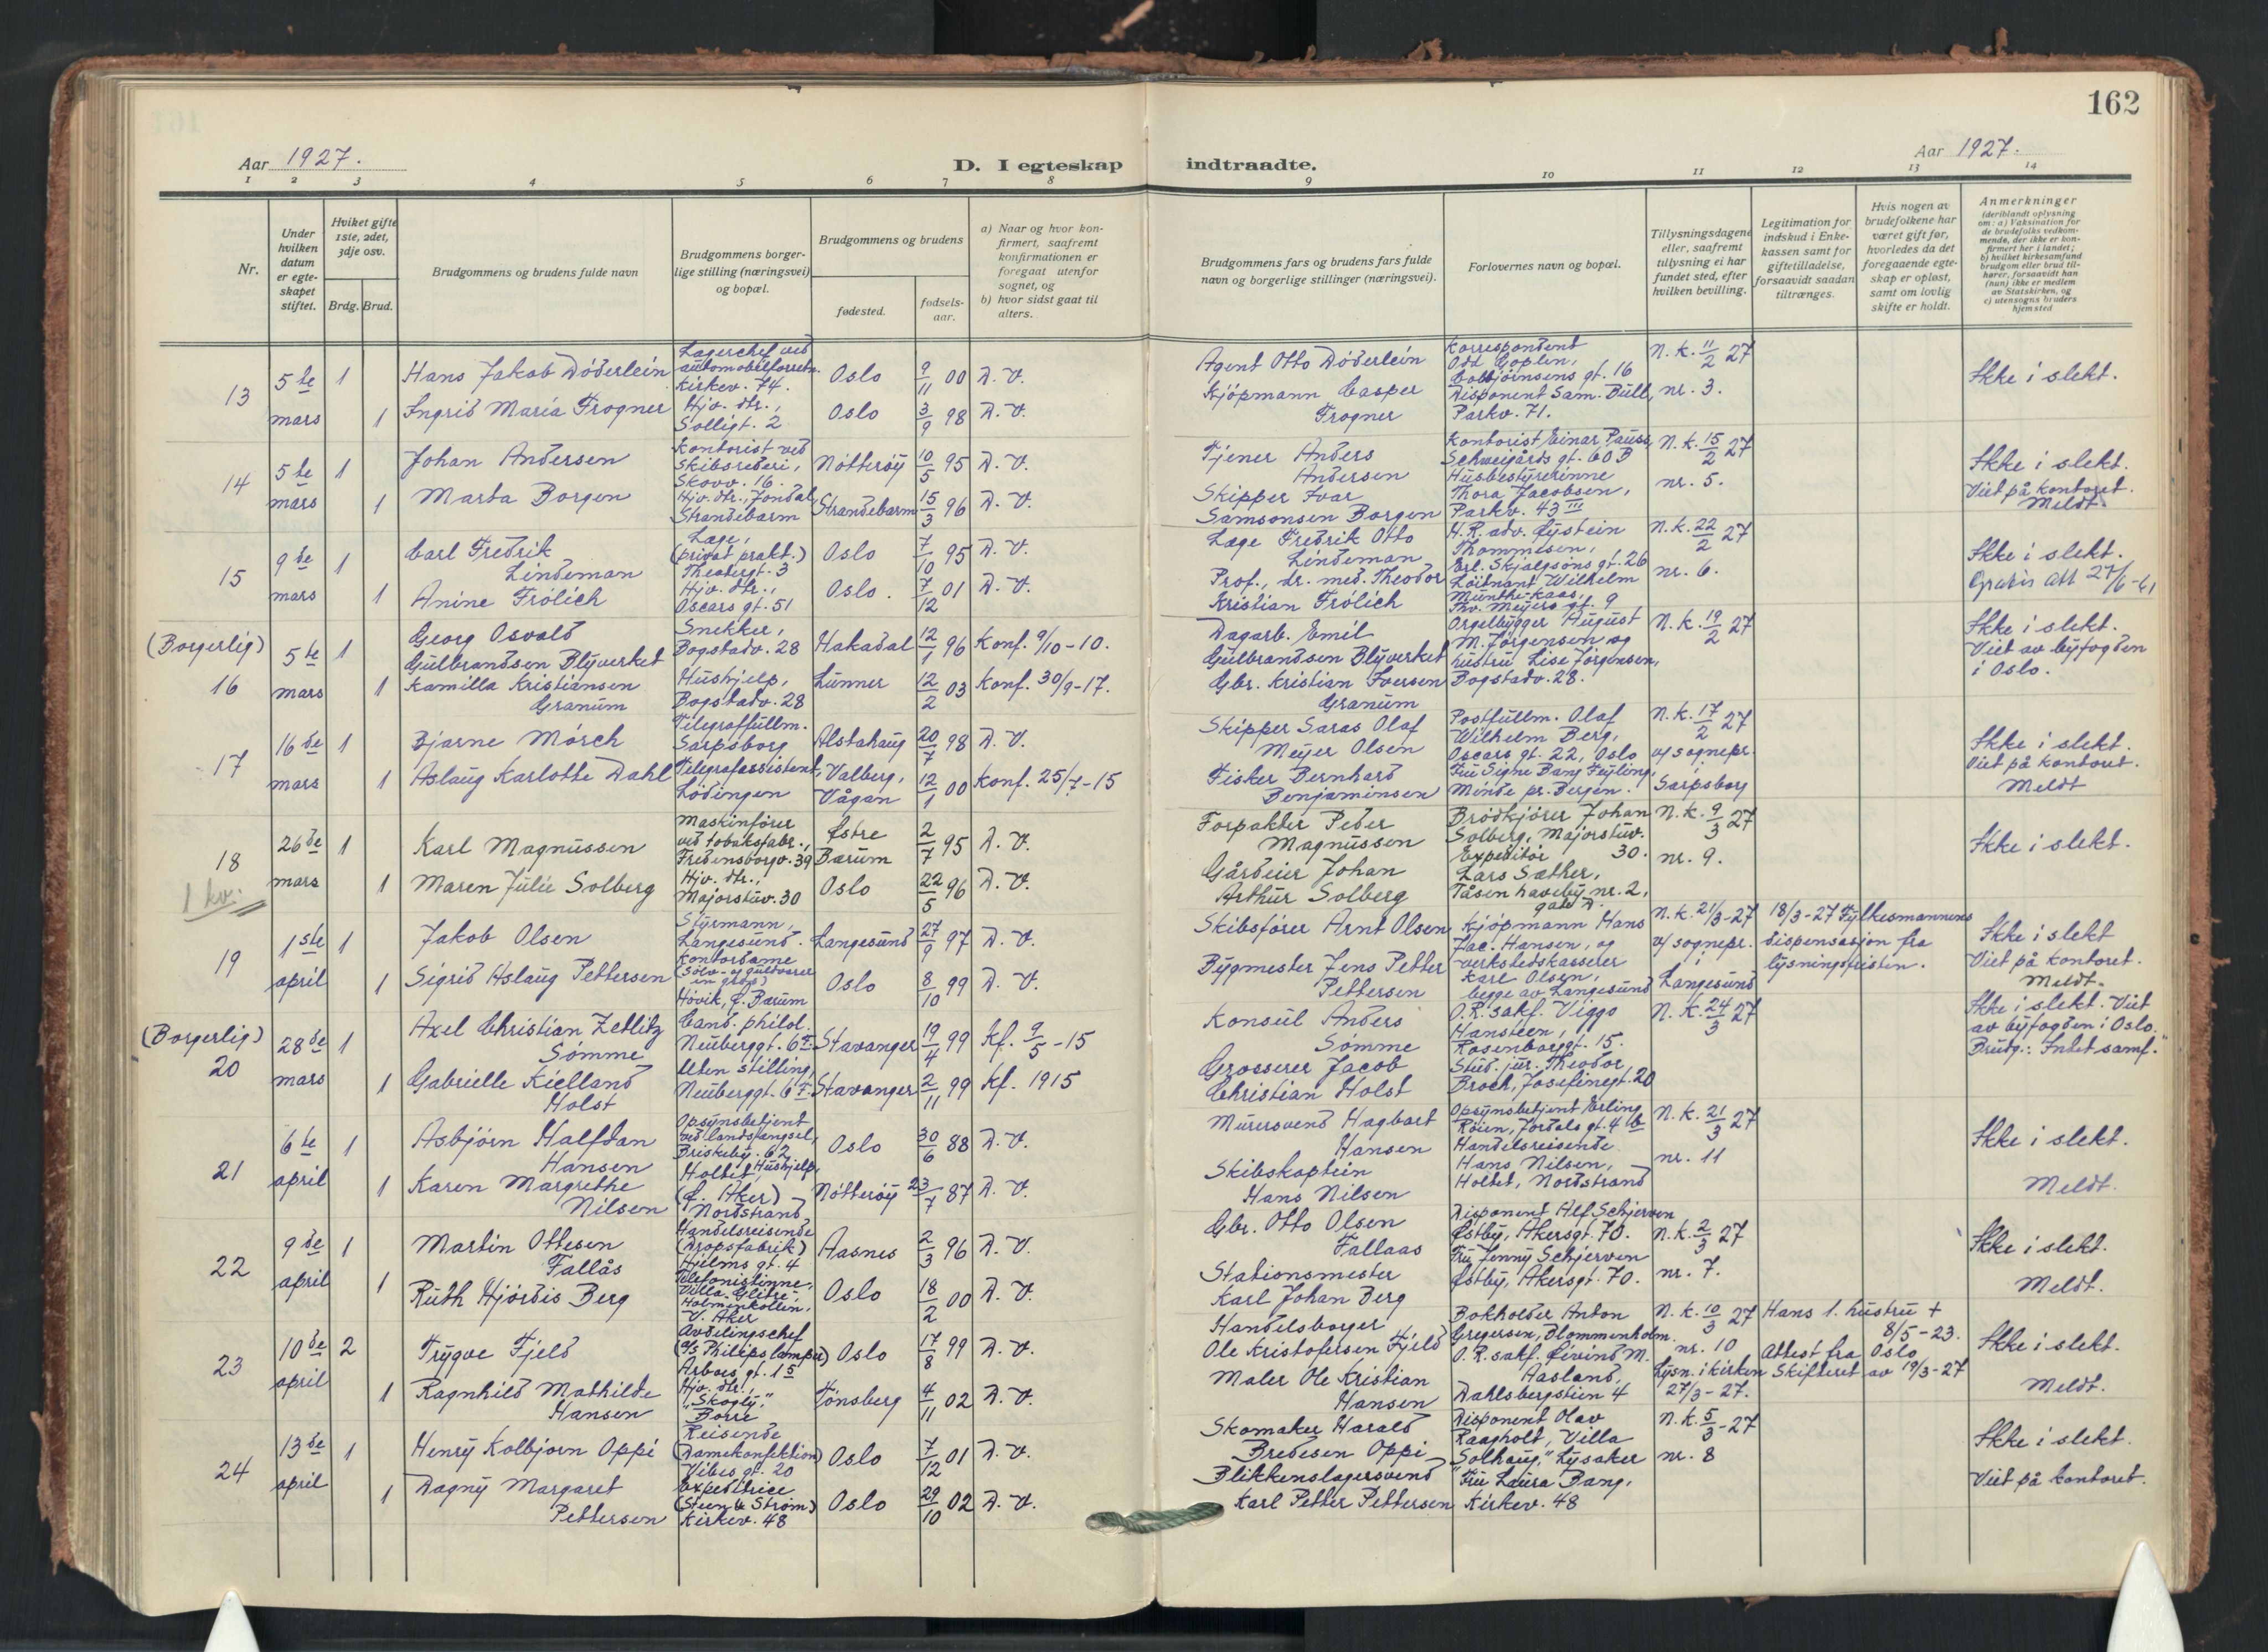 162
Aar 1927.
D. I egteskap indtraadte.
Aar 1927.
1 2 3 4 5 6 7 8 9 10 11 12 13 14
Nr.
Under hvilken datum er egte-skapet stiftet.
Hviket gifte 1ste, 2det, 3dje osv.
Brdg. Brud.
Brudgommens og brudens fulde navn
Brudgommens borger-lige stilling (næringsvei) og bopæl.
Brudgommens og brudens
fødested.
fødsels-aar.
a) Naar og hvor kon-firmert, saafremt konfirmationen er foregaat utenfor sognet, og
b) hvor sidst gaat til alters.
Brudgommens fars og brudens fars fulde navn og borgerlige stillinger (næringsvei).
Forlovernes navn og bopæl.
Tillysningsdagene eller, saafremt tillysning ei har fundet sted, efter hvilken bevilling.
Legitimation for indskud i Enke-kassen samt for giftetilladelse, forsaavidt saadan tiltrænges.
Hvis nogen av brudefolkene har været gift før, hvorledes da det foregaaende egte-skap er opløst, samt om lovlig skifte er holdt.
Anmerkninger
(deriblandt oplysning om: a) Vaksination for de brudefolks vedkom-mende, der ikke er kon-firmert her i landet;
b) hvilket kirkesamfund brudgom eller brud til-hører, forsaavidt han (hun) ikke er medlem av Statskirken, og
c) utensogns bruders hjemsted
13
5te mars
1
Hans Jakob Döderlein
Lagerchef ved automobilforretn. Kirkev. 74.
Oslo
9/11 00
D. V.
Agent Otto Döderlein
Korrespondent Odd Goplen, Colbjörnsens gt. 16
N. K. 11/2 27
Ikke i slekt.
1
Ingrid Maria Frogner
Hjv. dtr., Solligt. 2
Oslo
3/9 98
D. V.
Kjöpmann Casper Frogner
Disponent Sam. Bull, Parkv. 71.
nr. 3.
14
5te mars
1
Johan Andersen
Kontorist ved Skibsrederi, Skovv. 16.
Nötteröy
10/5 95
D. V.
Tjener Anders Andersen
Kontorist Einar Pauss, Schweigårds gt. 60 B
N. K. 15/2 27
Ikke i slekt.
1
Marta Borgen
Hjv. dtr., Jondal, Strandebarm
Strandebarm
15/3 96
D. V.
Skipper Ivar Samsonsen Borgen
Husbestyrerinne Thora Jacobsen, Parkv. 43 III
nr. 5.
Viet på kontoret. Meldt.
15
9de mars
1
Carl Fredrik Lindeman
Læge, (privat prakt.) Theatergt. 3
Oslo
7/10 95
D. V.
Læge Fredrik Otto Lindeman
H.R. adv. Öystein Thommesen, Erl. Skjalgsöns gt. 26
N. K. 22/2 27
Ikke i slekt.
1
Anine Frölich
Hjv. dtr., Oscars gt. 51
Oslo.
7/12 01
D. V.
Prof., dr. med. Theodor Kristian Frölich
Löitnant Wilhelm Munthe-Kaas, Thv. Meyers gt. 9
nr. 6.
Gratis att 27/6-41
(Borgerlig)
16
5te mars
1
Georg Osvald Gulbrandsen Blyverket
Snekker, Bogstadv. 28
Hakadal
12/1 96
Konf. 9/10-10.
Dagarb. Emil Gulbrandsen Blyverket
Orgelbygger August M. Jörgensen og hustru Lise Jörgensen, Bogstadv. 28.
N. K. 19/2 27
Ikke i slekt.
Viet av byfogden i Oslo.
1
Kamilla Kristiansen Granum
Hushjelp, Bogstadv. 28
Lunner
12/2 03
Konf. 30/9-17.
Gbr. Kristian Iversen Granum
17
16de mars
1
Bjarne Mörch
Telegraffullm. Sarpsborg
Alstahaug
20/7 98
D. V.
Skipper Saras Olaf Meyer Olsen
Postfullm. Olaf Wilhelm Berg, Oscars gt. 22, Oslo
N. K. 17/2 27
v/ sognepr. i Sarpsborg
Ikke i slekt.
Viet på kontoret.
Meldt
1
Aslaug Karlotte Dahl
Telegrafassistent, Lödingen
Valberg, Vågan
12/1 00
Konf. 25/7-15
Fisker Bernhard Benjaminsen
Fru Signe Bang Feyling, Minde pr. Bergen.
18
26de mars
1
Karl Magnussen
Maskinförer ved tobaksfabr., Fredensborgv. 39
Östre Bærum
2/7 95
D. V.
Forpakter Peder Magnussen
Brödkjörer Johan Solberg, Majorstuv. 30.
N. K. 9/3 27
Ikke i slekt.
1 kv.
1
Maren Julie Solberg
Hjv. dtr., Majorstuv. 30
Oslo
22/5 96
D. V.
Gårdeier Johan Arthur Solberg
Expeditör Lars Sæther, Tåsen haveby nr. 2, gate D.
nr. 9.
19
1ste april
1
Jakob Olsen
Styrmann, Langesund.
Langesund
27/9 97
D. V.
Skibsförer Arnt Olsen
Kjöpmann Hans Jac. Hansen, og
N. K. 21/3-27
v/ sognepr. i Langesund
18/3-27 Fylkesmannens dispensasjon fra lysningsfristen.
Ikke i slekt
Viet på kontoret.
Meldt.
1
Sigrid Aslaug Pettersen
Kontordame (Sölv- og guldvarer en gros) Hövik, Ö. Bærum
Oslo
8/10 99
D. V.
Bygmester Jens Petter Pettersen
verkstedskasserer Karl Olsen, begge av Langesund
(Borgerlig)
20
28de mars
1
Axel Christian Zetlitz Sömme
Cand. philol. Neuberggt. 6 II.
Stavanger
19/4 99
Kf. 9/5-15
Konsul Anders Sömme
O.R.sakf. Viggo Hansteen, Rosenborggt. 15.
N. K. 24/3 27
Ikke i slekt. Viet av byfogden i Oslo.
Brudg.: "Intet samf."
1
Gabrielle Kielland Holst
Uten stilling, Neuberggt. 6 II.
Stavanger
2/11 99
Kf. 1915
Grosserer Jacob Christian Holst
Stud. jur. Theodor Broch, Josefinegt. 20
21
6te april
1
Asbjörn Halfdan Hansen
Opsynsbetjent ved landsfængsel, Briskeby. 62
Oslo
30/6 88
D. V.
Murersvend Hagbart Hansen
Opsynsbetjent Erling Röien, Jordals gt. 4 b
N. K. 21/3 27
Ikke i slekt.
1
Karen Margrethe Nilsen
Hushjelp, Holtet, (Ö. Aker) Nordstrand
Nötteröy
23/7 87
D. V.
Skibskaptein Hans Nilsen
Handelsreisende Hans Nilsen, Holtet, Nordstrand
nr. 11
Meldt.
22
9de april
1
Martin Ottesen Fallås
Handelsreisende (Dropsfabrik) Hjelms gt. 4
Aasnes
2/3 96
D. V.
Gbr. Otto Olsen Fallaas
Disponent Alf Schjerven Östby, Akersgt. 70.
N. K. 2/3 27
Ikke i slekt.
1
Ruth Hjördis Berg
Telefonistinne, Villa Glitre, Holmenkollen, V. Aker
Oslo
18/2 00
D. V.
Stationsmester Karl Johan Berg
Fru Jenny Schjerven Östby, Akersgt. 70.
nr. 7.
Meldt.
23
10de april
2
Trygve Fjeld
Avdelingschef (A/S Philipslamper) Arboes gt. 1 5
Oslo
17/8 99
D. V.
Handelsborger Ole Kristofersen Fjeld
Bokholder Anton Gregersen, Blommenholm.
N. K. 10/3 27
nr. 10
Lysn. i kirken 27/3-27.
Hans 1. hustru + 8/5-23.
Attest fra Oslo Skifteret av 19/3-27
Ikke i slekt.
1
Ragnhild Mathilde Hansen
Hjv. dtr., "Skogly," Borre
Tönsberg
4/11 02
D. V.
Maler Ole Kristian Hansen
O. R. sakf. Eivind M. Aasland, Dahlsbergstien 4
Meldt.
24
13de april
1
Henry Kolbjorn Oppi
Reisende (Damekonfektion) Vibes gt. 20
Oslo
7/12 01
D. V.
Skomaker Harald Bredesen Oppi
Disponent Olav Raagholt, Villa "Solhaug," Lysaker
N. K. 5/3-27
Ikke i slekt.
1
Dagny Margaret Pettersen
Expeditrice (Steen & Ström) Kirkev. 48
Oslo
29/10 02
D. V.
Blikkenslagersvend Karl Petter Pettersen
Fru Laura Bang, Kirkev. 48
nr. 8
Viet på kontoret.